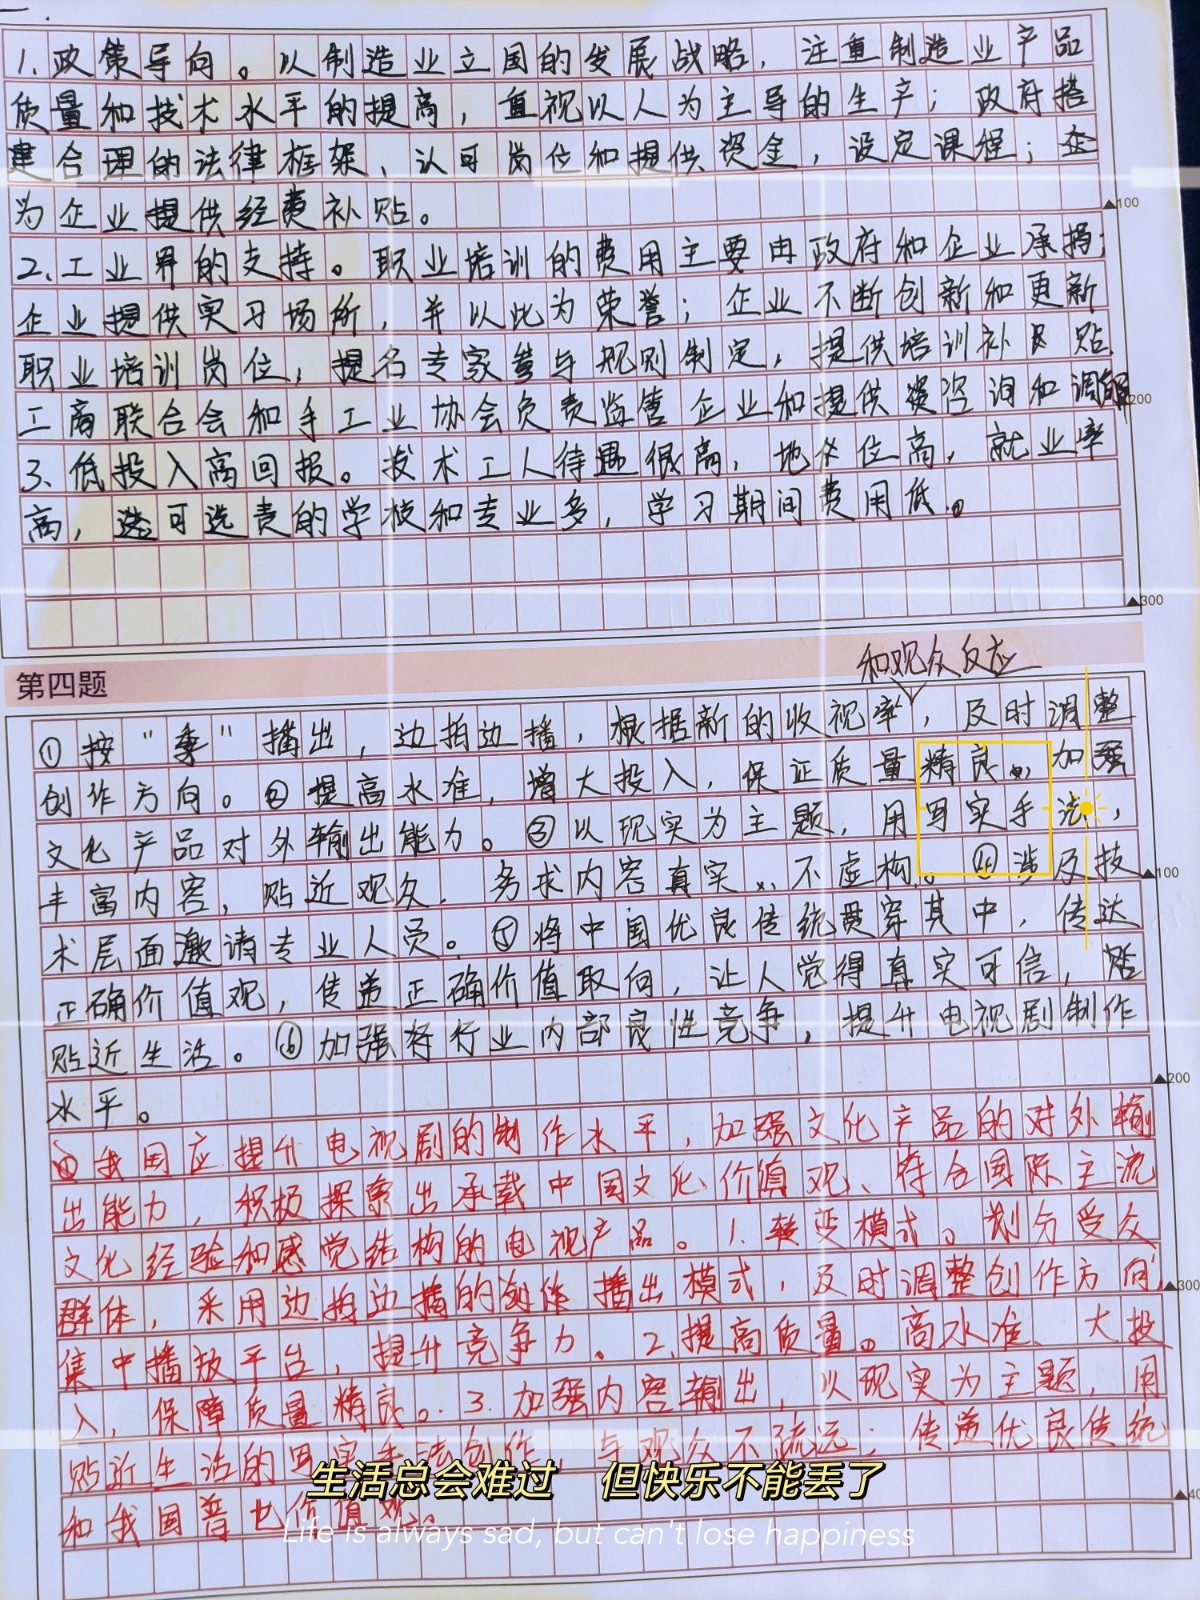 1.政策导向。以制造业立国的发展战略，注重制造业产品
质量和技术水平的提高，重视以人为主导的生产；政府搭
建合理的法律框架、认可岗位和提供资金，设定课程；企
为企业提供经费补贴。
100
2.工业界的支持。职业培训的费用主要由政府和企业承担；
企业提供实习场所，并以此为荣誉；企业不断创新和更新
职业培训岗位，提名专家参与规则制定，提供培训补贴
工商联合会和手工业协会负责监管企业和提供咨询和调解
200
3.低投入高回报。技术工人待遇很高，地位高，就业率
高，可选责的学校和专业多，学习期间费用低。
300
第四题
和观众反应
①按“季”播出，边拍边播，根据新的收视率，及时调整
创作方向。②提高水准，增大投入，保证质量精良。加强
文化产品对外输出能力。③以现实为主题，用写实手法，
丰富内容，贴近观众，务求内容真实、不虚构。④涉及技
100
术层面邀请专业人员。⑤将中国优良传统贯穿其中，传达
正确价值观，传递正确价值取向，让人觉得真实可信，
贴近生活。⑥加强行业内部良性竞争，提升电视剧制作
200
水平。
我国应提升电视剧的制作水平，加强文化产品的对外输
出能力，积极探索出承载中国文化价值观、符合国际主流
文化经验和感觉结构的电视产品。1.转变模式。划分受众
群体，采用边拍边播的创作播出模式，及时调整创作方向，
300
集中播放平台，提升竞争力。2.提高质量。高水准、大投
入，保障质量精良。3.加强内容输出，以现实为主题，用
贴近生活的写实手法创作，与观众不疏远；传递优良传统
和我国普世价值观。
40
生活总会难过 但快乐不能丢了
Life is always sad, but can't lose happiness